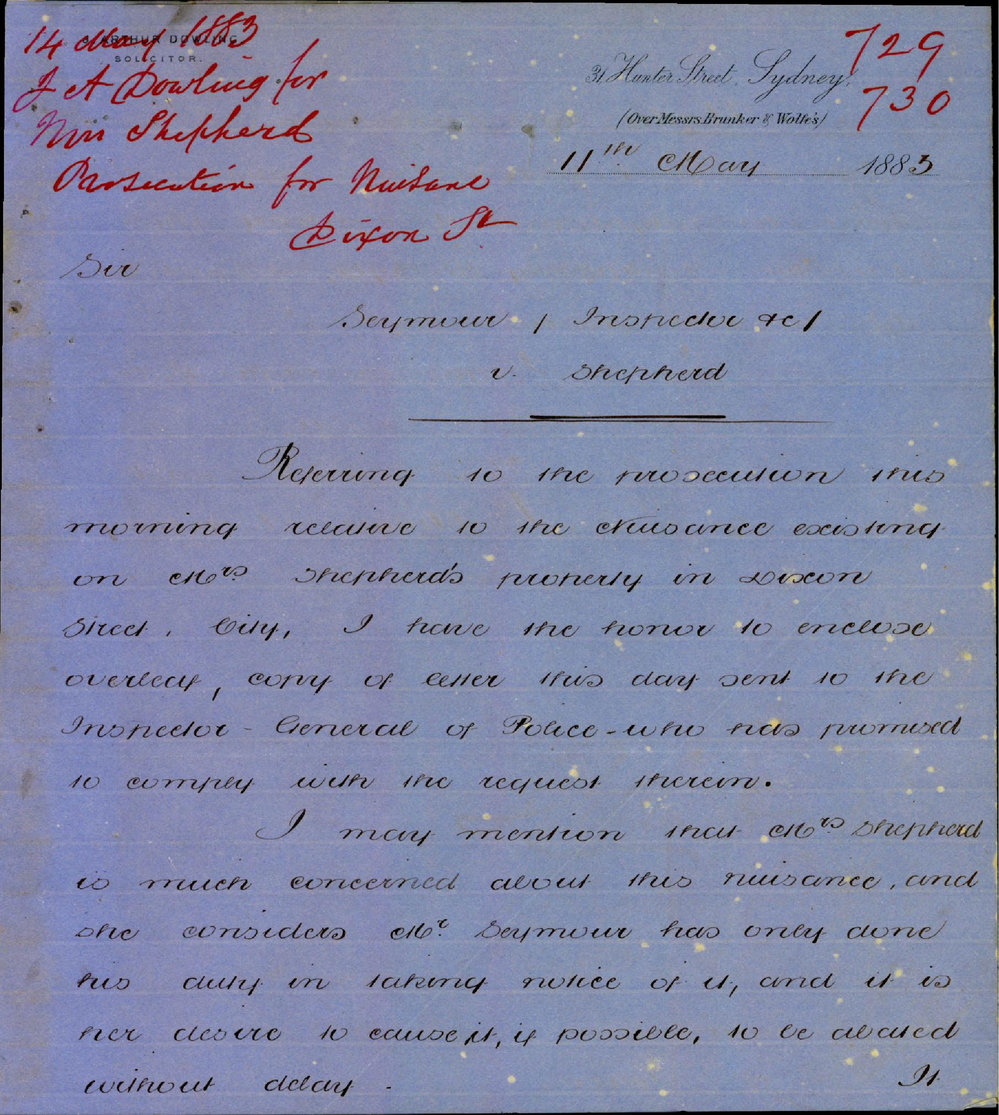 14 May 1883
J. ARTHUR DOWLING
SOLICITOR.
J A Dowling for
Mrs Shepherd
Prosecution for Nuisance
Dixon St
729
730
31 Hunter Street, Sydney,
(Over Messrs. Brunker & Wolfe's)
11th May 1883
Sir
Seymour / Inspector &c /
v. Shepherd
Referring to the prosecution this
morning relative to the Nuisance existing
on Mrs Shepherd's property in Dixon
Street, City, I have the honor to enclose
overleaf, copy of letter this day sent to the
Inspector-General of Police - who has promised
to comply with the request therein.
I may mention that Mrs Shepherd
is much concerned about this nuisance, and
she considers Mr. Seymour has only done
his duty in taking notice of it, and it is
her desire to cause it, if possible, to be abated
without delay -
It